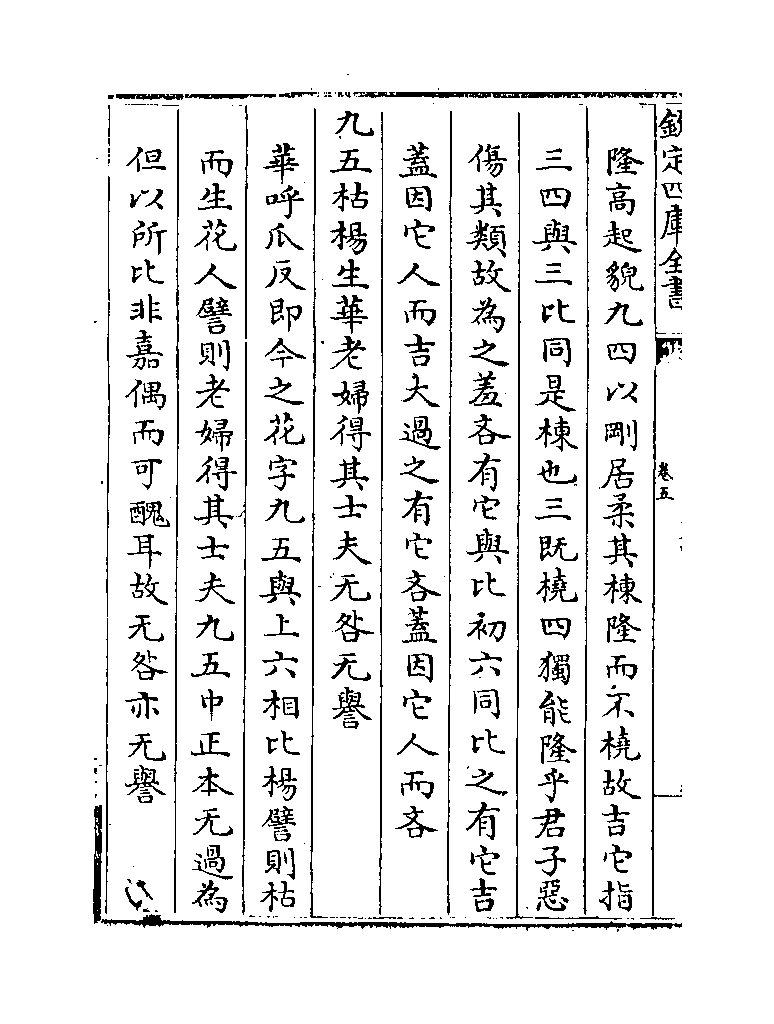 欽定四庫全書
卷五
隆高起貌九四以剛居柔其棟隆而不橈故吉它指
三四與三比同是棟也三既橈四獨能隆乎君子惡
傷其類故為之羞吝有它與比初六同比之有它吉
蓋因它人而吉大過之有它吝蓋因它人而吝
九五枯楊生華老婦得其士夫无咎无譽
華呼瓜反即今之花字九五與上六相比楊譬則枯
而生花人譬則老婦得其士夫九五中正本无過為
但以所比非嘉偶而可醜耳故无咎亦无譽